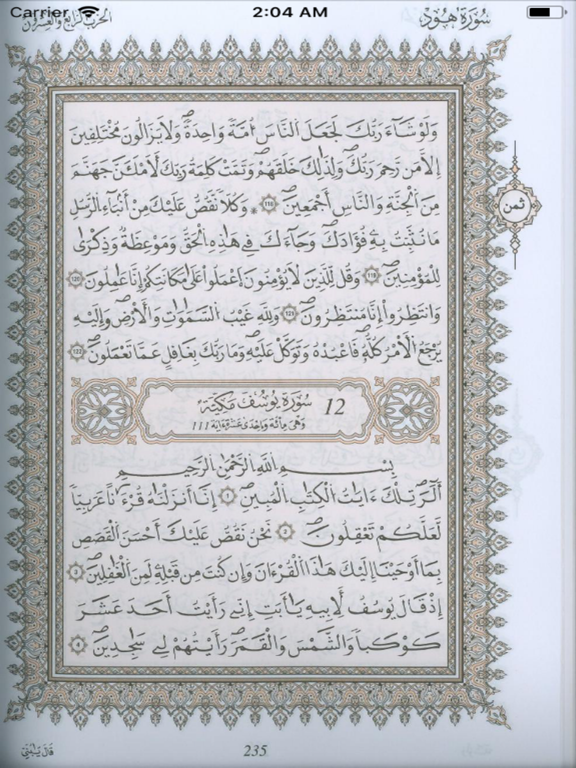 Carrier 2:04 AM
الحزب الرابع والعشرون سُورَة هُود
وَلَوْ شَآءَ رَبُّكَ لَجَعَلَ اَلنَّاسَ أُمَّةً وَٰحِدَةً وَلَا يَزَالُونَ مُخْتَلِفِينَ
إِلَّا مَن رَّحِمَ رَبُّكَ وَلِذَٰلِكَ خَلَقَهُمْ وَتَمَّتْ كَلِمَةُ رَبِّكَ لَأَمْلَأَنَّ جَهَنَّمَ
مِنَ اَلْجِنَّةِ وَالنَّاسِ أَجْمَعِينَ 118 وَكُلّاً نَّقُصُّ عَلَيْكَ مِنْ أَنۢبَآءِ اِلرُّسُلِ
ثمن
مَا نُثَبِّتُ بِهِۦ فُؤَادَكَ وَجَآءَكَ فِے هَٰذِهِ اِلْحَقُّ وَمَوْعِظَةٌ وَذِكْرَىٰ
لِلْمُؤْمِنِينَ 119 وَقُل لِّلذِينَ لَا يُؤْمِنُونَ اَعْمَلُواْ عَلَىٰ مَكَانَتِكُمُۥٓ إِنَّا عَٰمِلُونَ 120
وَانتَظِرُوٓاْ إِنَّا مُنتَظِرُونَ 121 وَلِلهِ غَيْبُ اُلسَّمَٰوَٰتِ وَالْأَرْضِ وَإِلَيْهِ
يَرْجِعُ اُلْأَمْرُ كُلُّهُۥ فَاعْبُدْهُ وَتَوَكَّلْ عَلَيْهِ وَمَا رَبُّكَ بِغَٰفِلٍ عَمَّا تَعْمَلُونَ 122
12 سُورَةُ يُوسُفَ مَكِّيَّة
وَهْيَ مِائَة وَإِحْدَى عَشْرَةَ ءَايَة 111
بِسْمِ اِللَّهِ اِلرَّحْمَٰنِ اِلرَّحِيمِ
أَلَٓر تِلْكَ ءَايَٰتُ اُلْكِتَٰبِ اِلْمُبِينِ 1 إِنَّآ أَنزَلْنَٰهُ قُرْءَٰناً عَرَبِيّاً
لَّعَلَّكُمْ تَعْقِلُونَ 2 نَحْنُ نَقُصُّ عَلَيْكَ أَحْسَنَ اَلْقَصَصِ
بِمَآ أَوْحَيْنَآ إِلَيْكَ هَٰذَا اَلْقُرْءَانَ وَإِن كُنتَ مِن قَبْلِهِۦ لَمِنَ اَلْغَٰفِلِينَ 3
إِذْ قَالَ يُوسُفُ لِأَبِيهِ يَٰٓأَبَتِ إِنِّے رَأَيْتُ أَحَدَ عَشَرَ
كَوْكَباً وَالشَّمْسَ وَالْقَمَرَ رَأَيْتُهُمْ لِے سَٰجِدِينَ 4
235
قَالَ يَٰبُنَيِّ